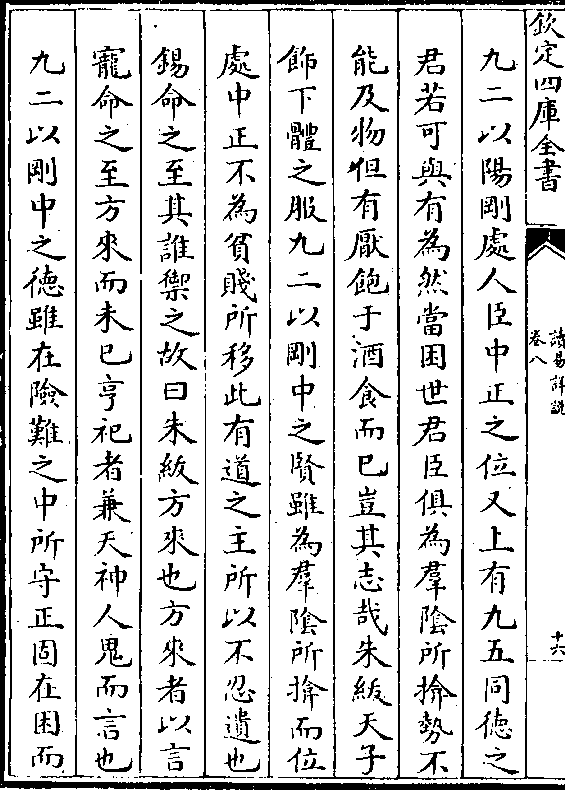 欽定四庫全書
讀易詳說
卷八
十六
九二以陽剛處人臣中正之位又上有九五同德之
君若可與有為然當困世君臣俱為羣陰所揜勢不
能及物但有厭飽于酒食而已豈其志哉朱紱天子
飾下體之服九二以剛中之賢雖為羣陰所揜而位
處中正不為貧賤所移此有道之主所以不忍遺也
錫命之至其誰禦之故曰朱紱方來也方來者以言
寵命之至方來而未已亨祀者兼天神人鬼而言也
九二以剛中之德雖在險難之中所守正固在困而